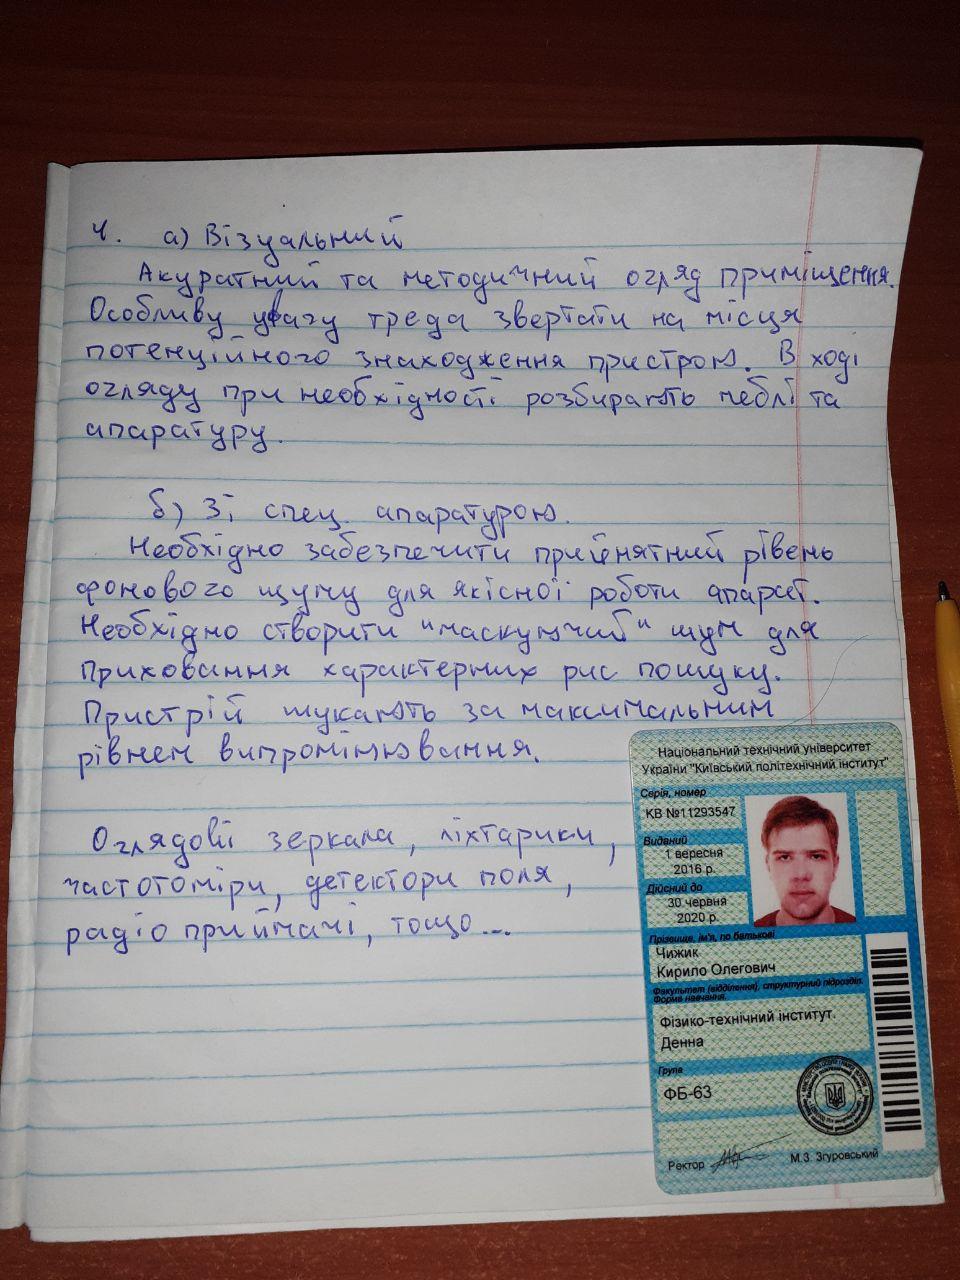 4. а) Візуальний
Акуратний та методичний огляд приміщення.
Особливу увагу треба звертати на місця
потенційного знаходження пристрою. В ході
огляду при необхідності розбирають меблі та
апаратуру.
б) Зі спец. апаратурою.
Необхідно забезпечити прийнятний рівень
фонового шуму для якісної роботи апарат.
Необхідно створити "маскуючий" шум для
приховання характерних рис пошуку.
Пристрій шукають за максимальним
рівнем випромінювання.
Оглядові зеркала, ліхтарики,
частотоміри, детектори поля,
радіо приймачі, тощо...
Національний технічний університет
України "Київський політехнічний інститут"
Серія, номер
КВ №11293547
Виданий
1 вересня
2016 р.
Дійсний до
30 червня
2020 р.
Прізвище, ім'я, по батькові
Чижик
Кирило Олегович
Факультет (відділення), структурний підрозділ.
Форма навчання.
Фізико-технічний інститут.
Денна
Група
ФБ-63
Ректор М.З. Згуровський